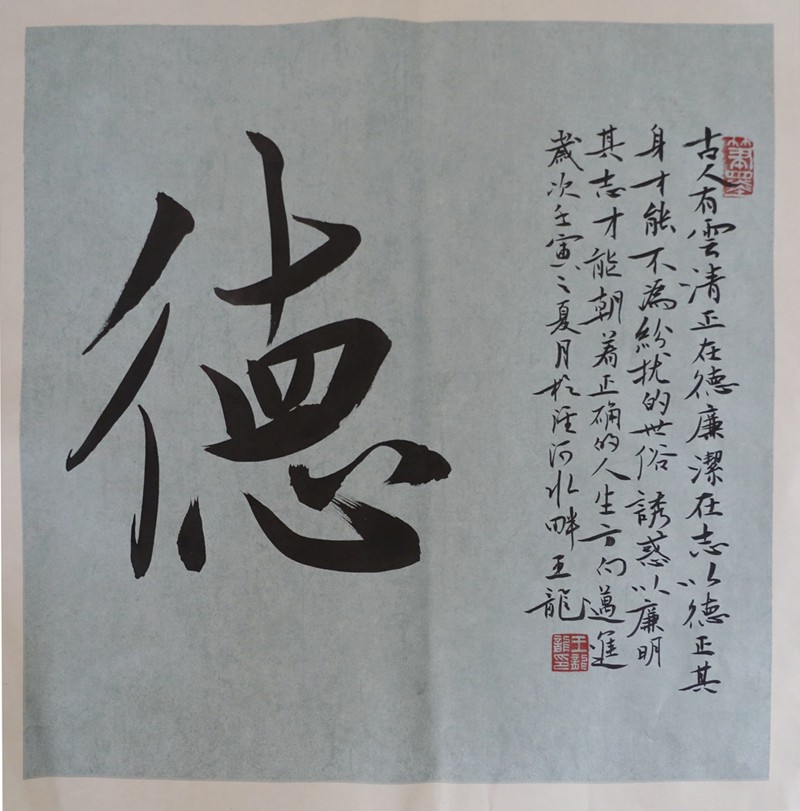 德
古人有雲清正在德廉潔在志以德正其
身才能不為紛扰的世俗誘惑以廉明
其志才能朝着正确的人生方向邁進
歲次壬寅之夏月於涇河水畔王龍